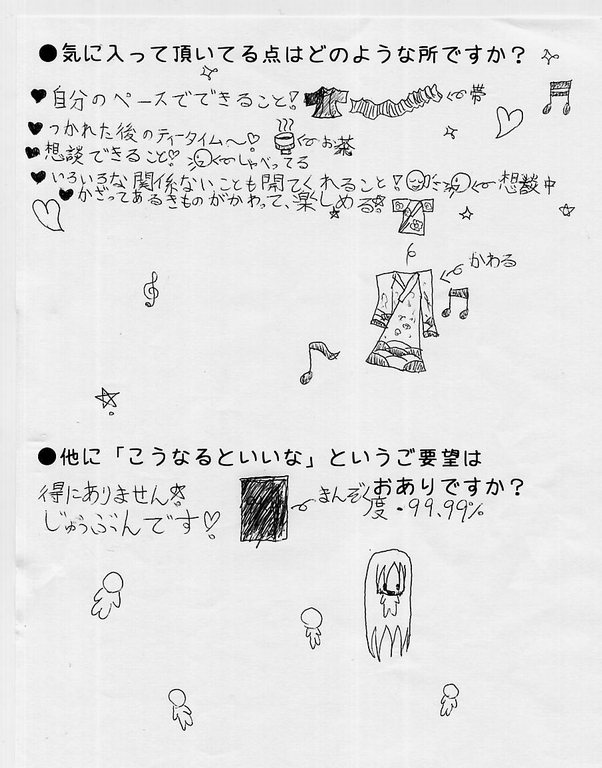 ●気に入って頂いてる点はどのような所ですか？
♥自分のペースでできること! 帯
♥つかれた後のティータイム〜♡ お茶
♥想談できること♡ しゃべってる
♥いろいろな関係ないことも聞てくれること! 想談中
♥かざってあるきものがかわって、楽しめる!
かわる
●他に「こうなるといいな」というご要望は
おありですか？
得にありません! まんぞく
じゅうぶんです♡ 度・99.99%